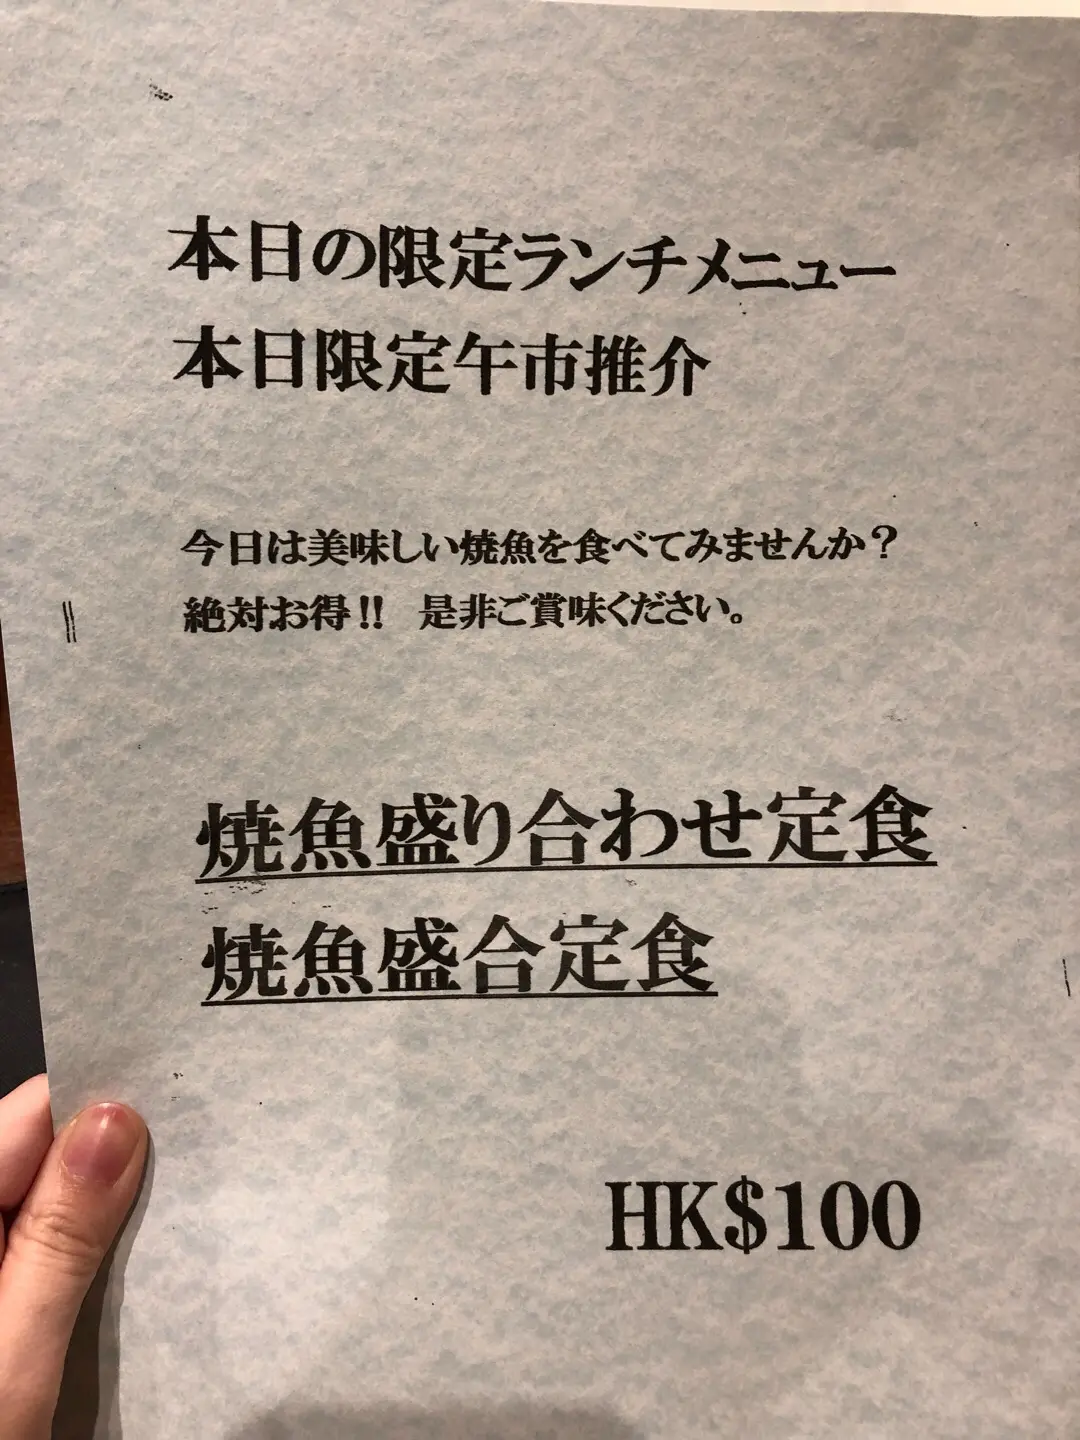 本日の限定ランチメニュー
本日限定午市推介
今日は美味しい焼魚を食べてみませんか？
絶対お得!!　是非ご賞味ください。
焼魚盛り合わせ定食
焼魚盛合定食
HK$100